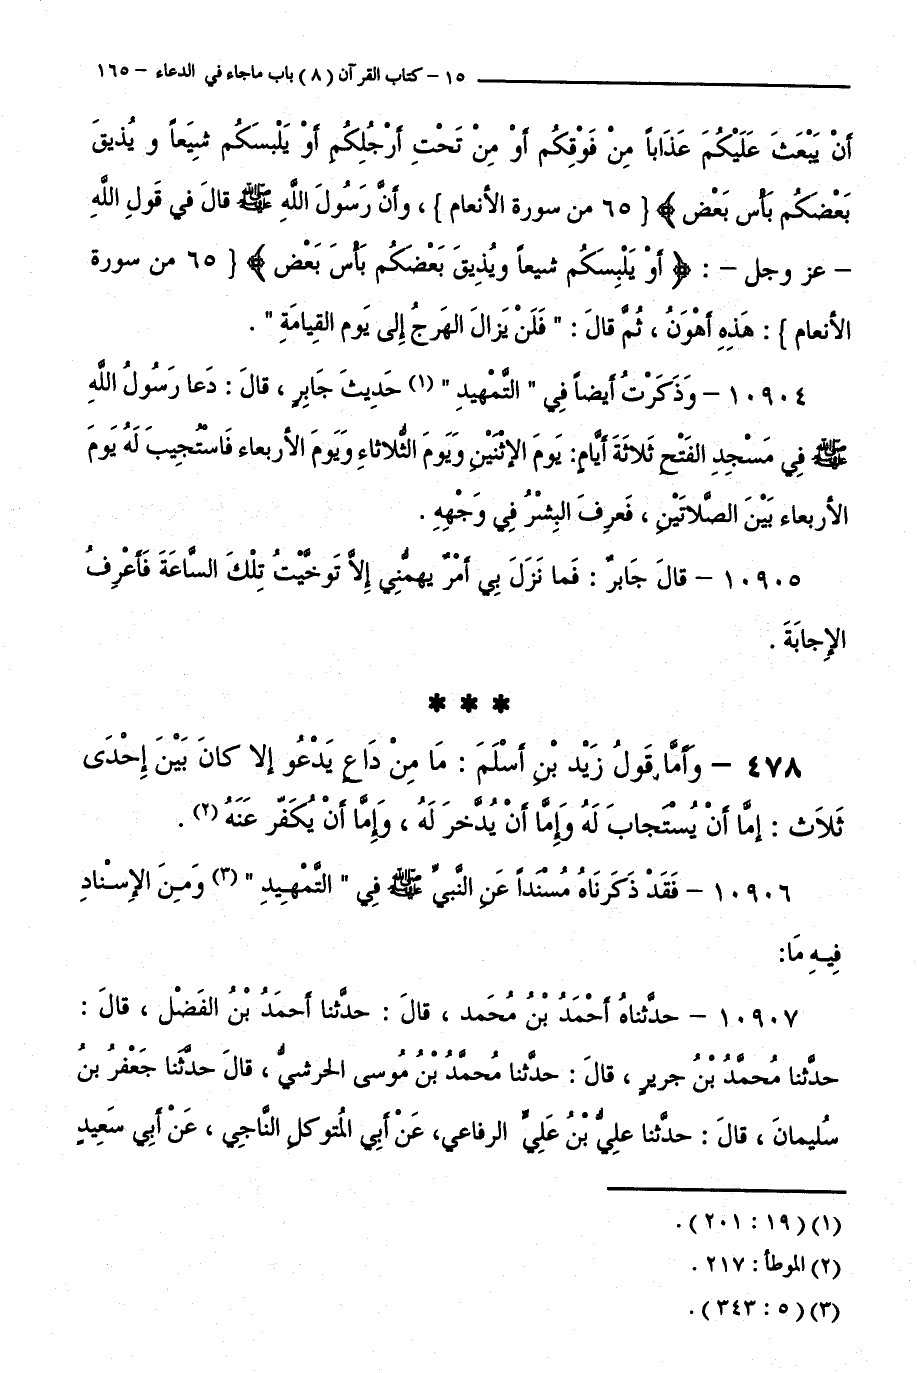 ١٥ – كتاب القرآن ( ٨ ) باب ماجاء في الدعاء – ١٦٥
أَنْ يَبْعَثَ عَلَيْكُمَ عَذَاباً مِنْ فَوْقِكُم أَوْ مِنْ تَحْتِ أَرْجُلِكُمِ أَوْ يَلْبسَكُم شِيَعاً و يُذيقَ
بَعْضكُم بَأْس بَعْض ﴾ { ٦٥ من سورة الأنعام } ، وأنَّ رَسُولَ اللَّهِ ﷺ قالَ في قَولِ اللَّهِ
– عز وجل – : ﴿ أَوْ يَلْبِسكُم شيعاً ويُذِيقَ بَعْضكُم بَأْسَ بَعْض ﴾ { ٦٥ من سورة
الأنعام } : هَذِهِ أَهْوَنُ ، ثُمَّ قالَ : " فَلَنْ يَزالَ الهَرجُ إلى يَوم القِيامَةِ " .
١٠٩٠٤ – وَذَكَرْتُ أيضاً فِي " التَّمْهِيدِ " (١) حَدِيثَ جَابِرٍ ، قالَ : دَعا رَسُولُ اللَّهِ
ﷺ فِي مَسْجِدِ الفَتْحِ ثَلاثَةَ أَيَّامٍ: يَومَ الإثْنَيْنِ وَيَومَ الثُّلاثاءِ وَيَومَ الأربعاء فَاسْتُجِيبَ لَهُ يَومَ
الأربعاء بَيْنَ الصَّلاتَيْنِ ، فَعرِفَ البِشْرُ فِي وَجْهِهِ .
١٠٩٠٥ – قالَ جَابرٌ : فَما نَزَلَ بِي أَمْرٌ يهمُّنِي إِلاَّ تَوخَّيْتُ تِلْكَ السَّاعَةَ فَأَعْرِفُ
الإِجابَةَ .
* * *
٤٧٨ – وَأَمَّا قَولُ زَيْد بْنِ أَسْلَمَ : مَا مِنْ دَاعٍ يَدْعُو إلا كانَ بَيْنَ إِحْدَى
ثَلاَث : إمَّا أَنْ يُسْتَجابَ لَهُ وَإِمَّا أَنْ يُدَّخرَ لَهُ ، وَإِمَّا أَنْ يُكَفّر عَنَهُ (٢) .
١٠٩٠٦ – فَقَدْ ذَكَرنَاهُ مُسْنَداً عَنِ النَّبيِّ ﷺ فِي " التَّمْهِيدِ " (٣) وَمِنَ الإِسْنادِ
فِيهِ مَا:
١٠٩٠٧ – حدَّثناهُ أَحْمَدُ بْنُ مُحَمد ، قالَ : حدَّثنا أحمَدُ بْنُ الفَضْل ، قالَ :
حدَّثنا مُحمَّدُ بْنُ جريرٍ ، قالَ : حدَّثنا مُحمَّدُ بْنُ مُوسى الحرشيُّ ، قالَ حدَّثَنا جَعْفرُ بنُ
سُليمانَ ، قالَ : حدَّثنا عليُّ بْنُ عَليٍّ الرفاعي، عَنْ أبي المُتوكلِ النَّاجي ، عَنْ أبِي سَعِيدٍ
(١) ( ١٩ : ٢٠١ ) .
(٢) الموطأ : ٢١٧ .
(٣) ( ٥ : ٣٤٣ ) .